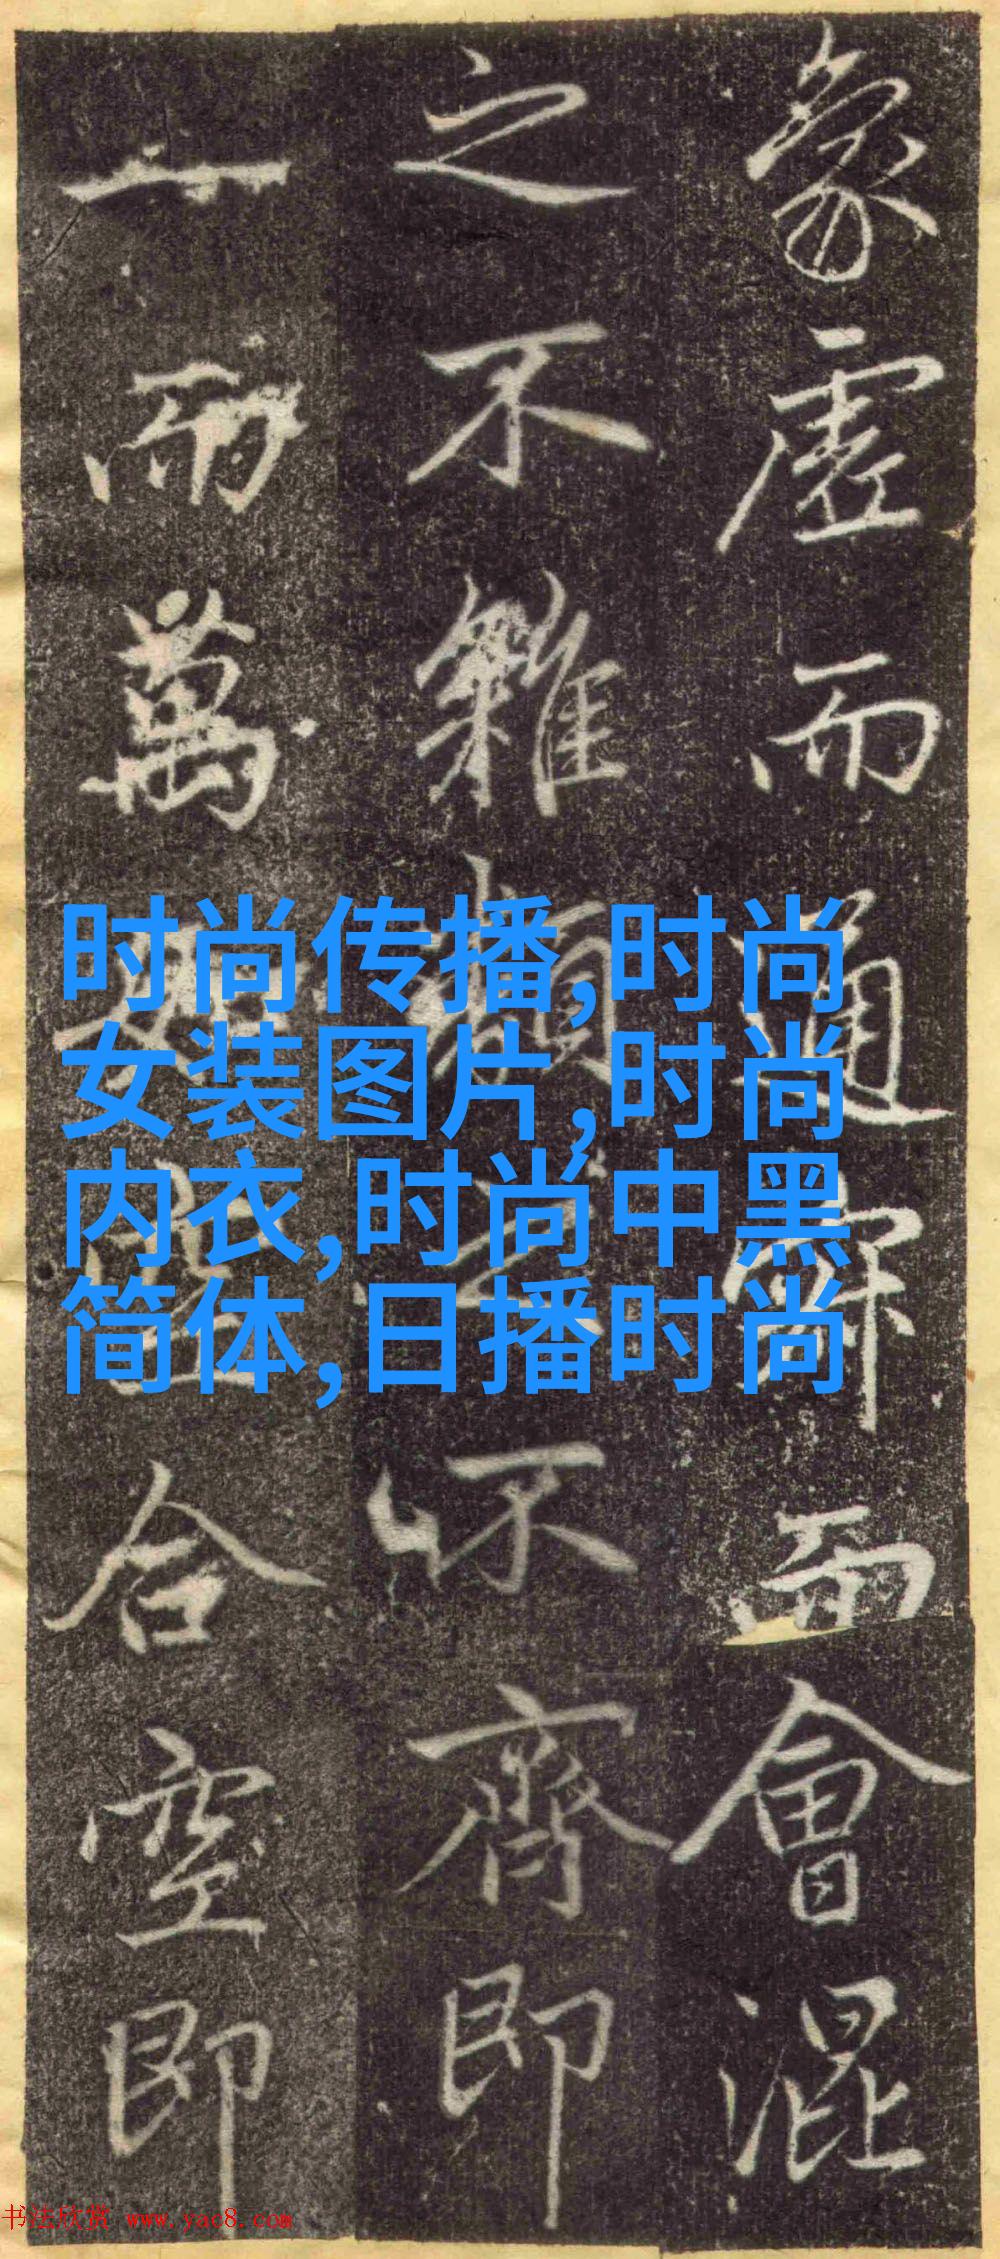 象虛而通解而會混
之不雜類之不齊即
一而萬合空即
时尚传播,时尚
女装图片,时尚
内衣,时尚中黑
简体,日播时尚
书法欣赏 www.yac8.com